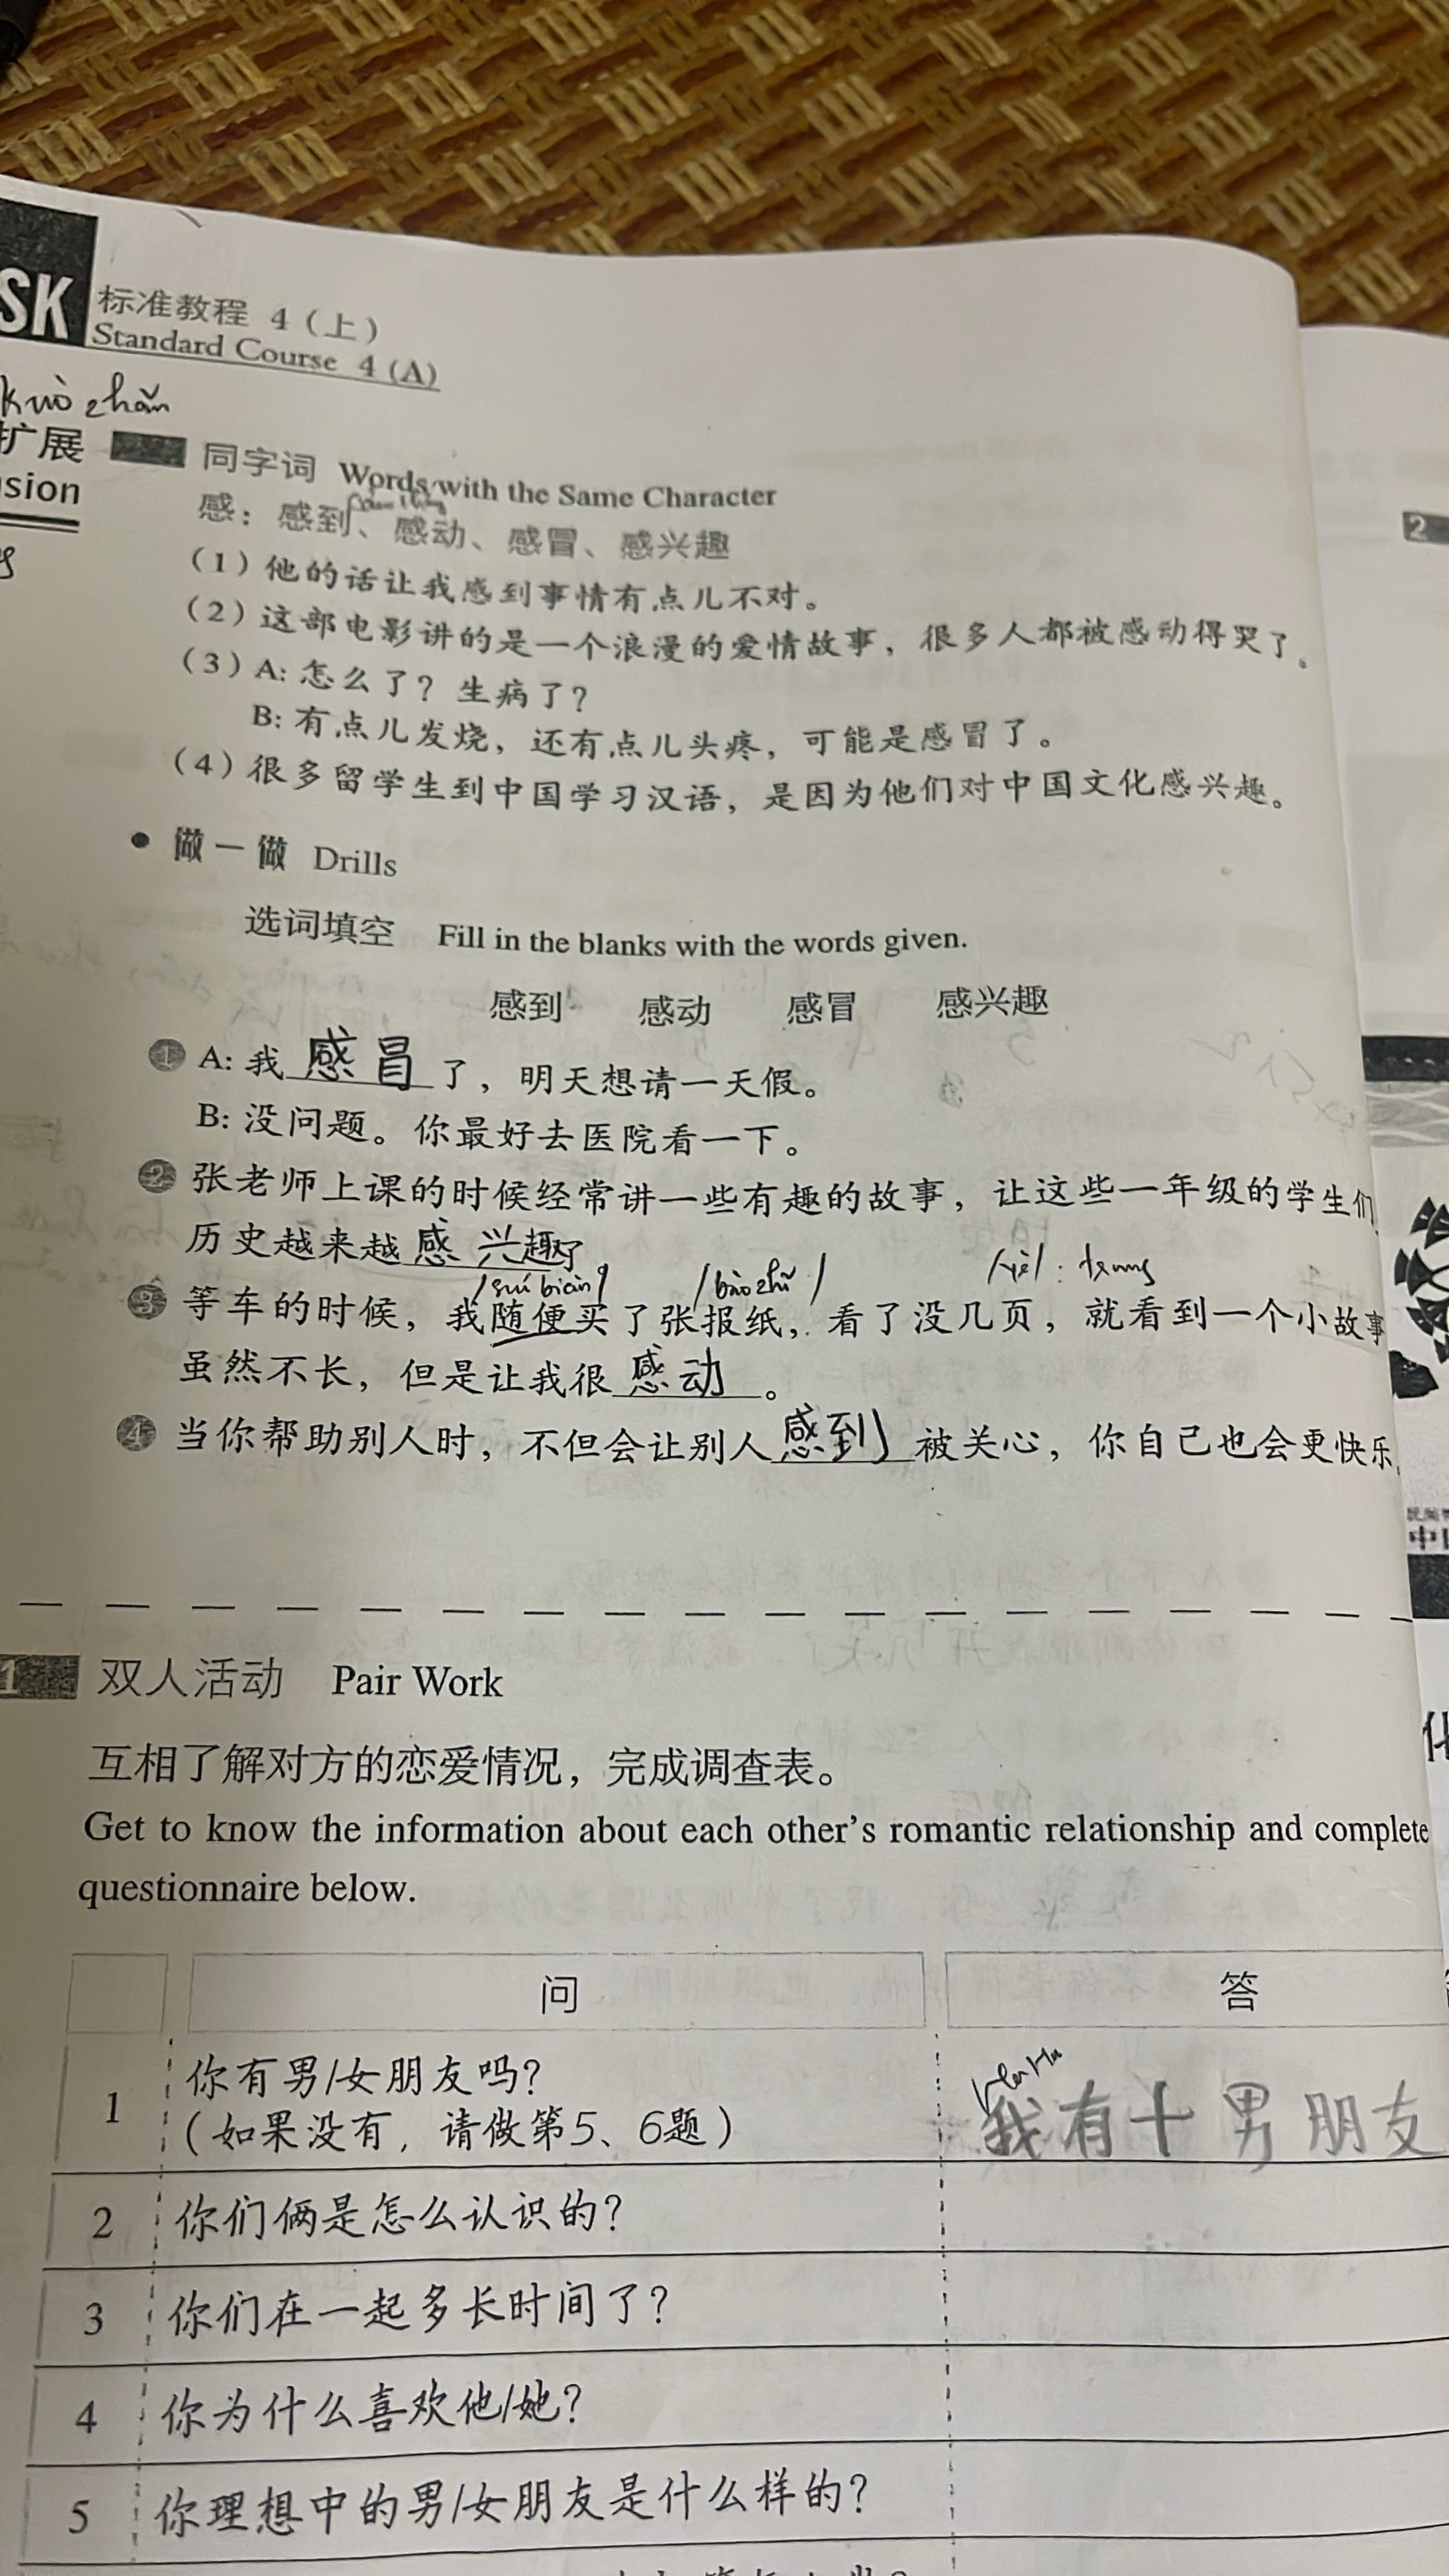 SK 标准教程 4（上）
Standard Course 4 (A)
kuò zhǎn
扩展
sion
同字词 Words with the Same Character
感：感到、感动、感冒、感兴趣
（1）他的话让我感到事情有点儿不对。
（2）这部电影讲的是一个浪漫的爱情故事，很多人都被感动得哭了。
（3）A: 怎么了？生病了？
B: 有点儿发烧，还有点儿头疼，可能是感冒了。
（4）很多留学生到中国学习汉语，是因为他们对中国文化感兴趣。
• 做一做 Drills
选词填空 Fill in the blanks with the words given.
感到 感动 感冒 感兴趣
1 A: 我感冒了，明天想请一天假。
B: 没问题。你最好去医院看一下。
2 张老师上课的时候经常讲一些有趣的故事，让这些一年级的学生们
历史越来越感兴趣了
/suí biàn/ /bào zhǐ/ /yè/: trang
3 等车的时候，我随便买了张报纸，看了没几页，就看到一个小故事
虽然不长，但是让我很感动。
4 当你帮助别人时，不但会让别人感到被关心，你自己也会更快乐
1 双人活动 Pair Work
互相了解对方的恋爱情况，完成调查表。
Get to know the information about each other's romantic relationship and complete
questionnaire below.
问 答
1 你有男/女朋友吗？
（如果没有，请做第5、6题）
我有十男朋友
2 你们俩是怎么认识的？
3 你们在一起多长时间了？
4 你为什么喜欢他/她？
5 你理想中的男/女朋友是什么样的？
2
中
化